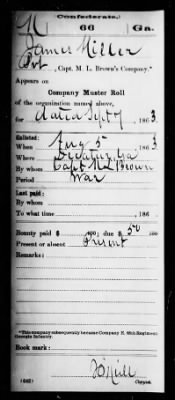 Confederate.
M 66 Ga.
James Miller
Pvt, Capt. M. L. Brown's Company.*
Appears on
Company Muster Roll
of the organization named above,
for dated Sept 7, 1863.
Enlisted:
When Aug 5, 1863.
Where Decatur Ga
By whom Capt M L Brown
Period War
Last paid:
By whom
To what time , 186 .
Bounty paid $ 100; due $ 50 100
Present or absent Present
Remarks:
*This company subsequently became Company K, 66th Regiment
Georgia Infantry.
Book mark:
(642)
Copyist.